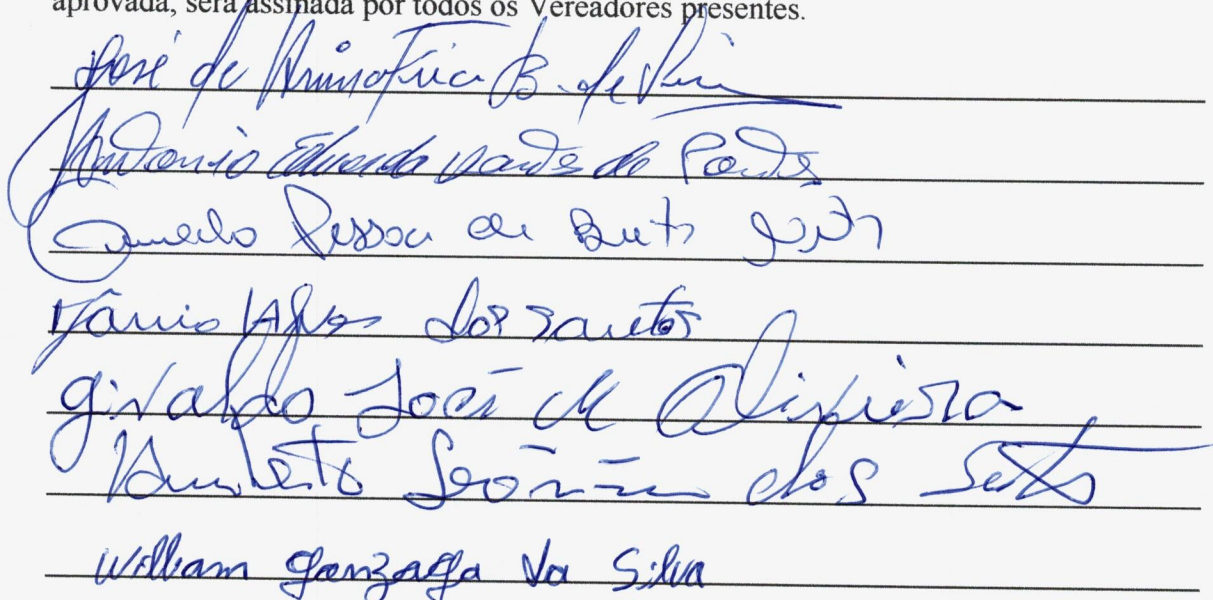 aprovada, será assinada por todos os Vereadores presentes.
José de Arimateia B. de
Antonio Eduardo de Pontes
Pessoa de Brito
Vânio Alves dos Santos
Givaldo José de Oliveira
Humberto dos
William Gonzaga da Silva